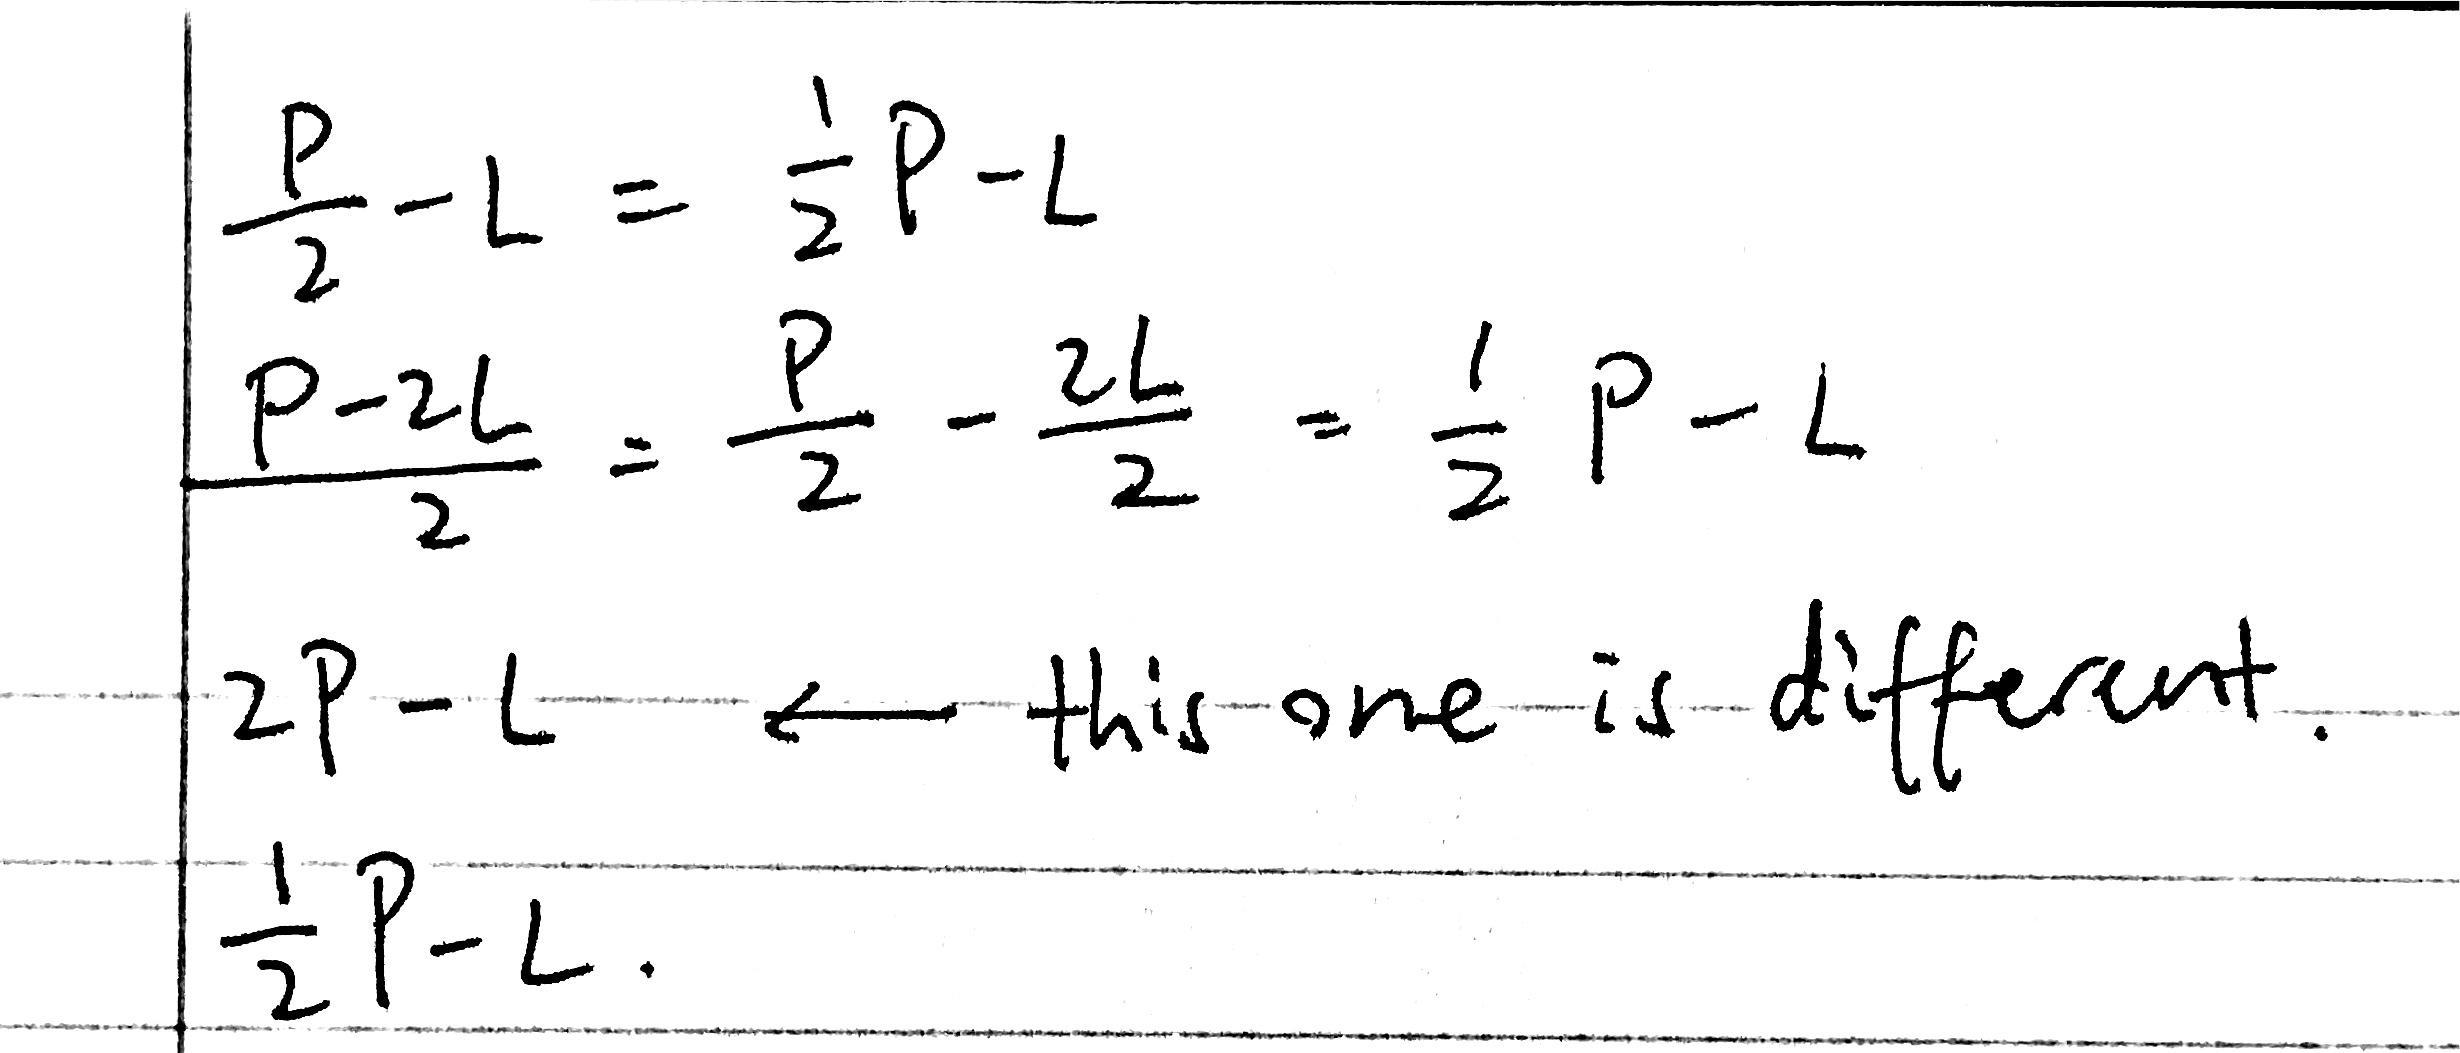 P/2 - L = 1/2 P - L
P-2L/2 = P/2 - 2L/2 = 1/2 P - L
2P - L ← this one is different.
1/2 P - L.